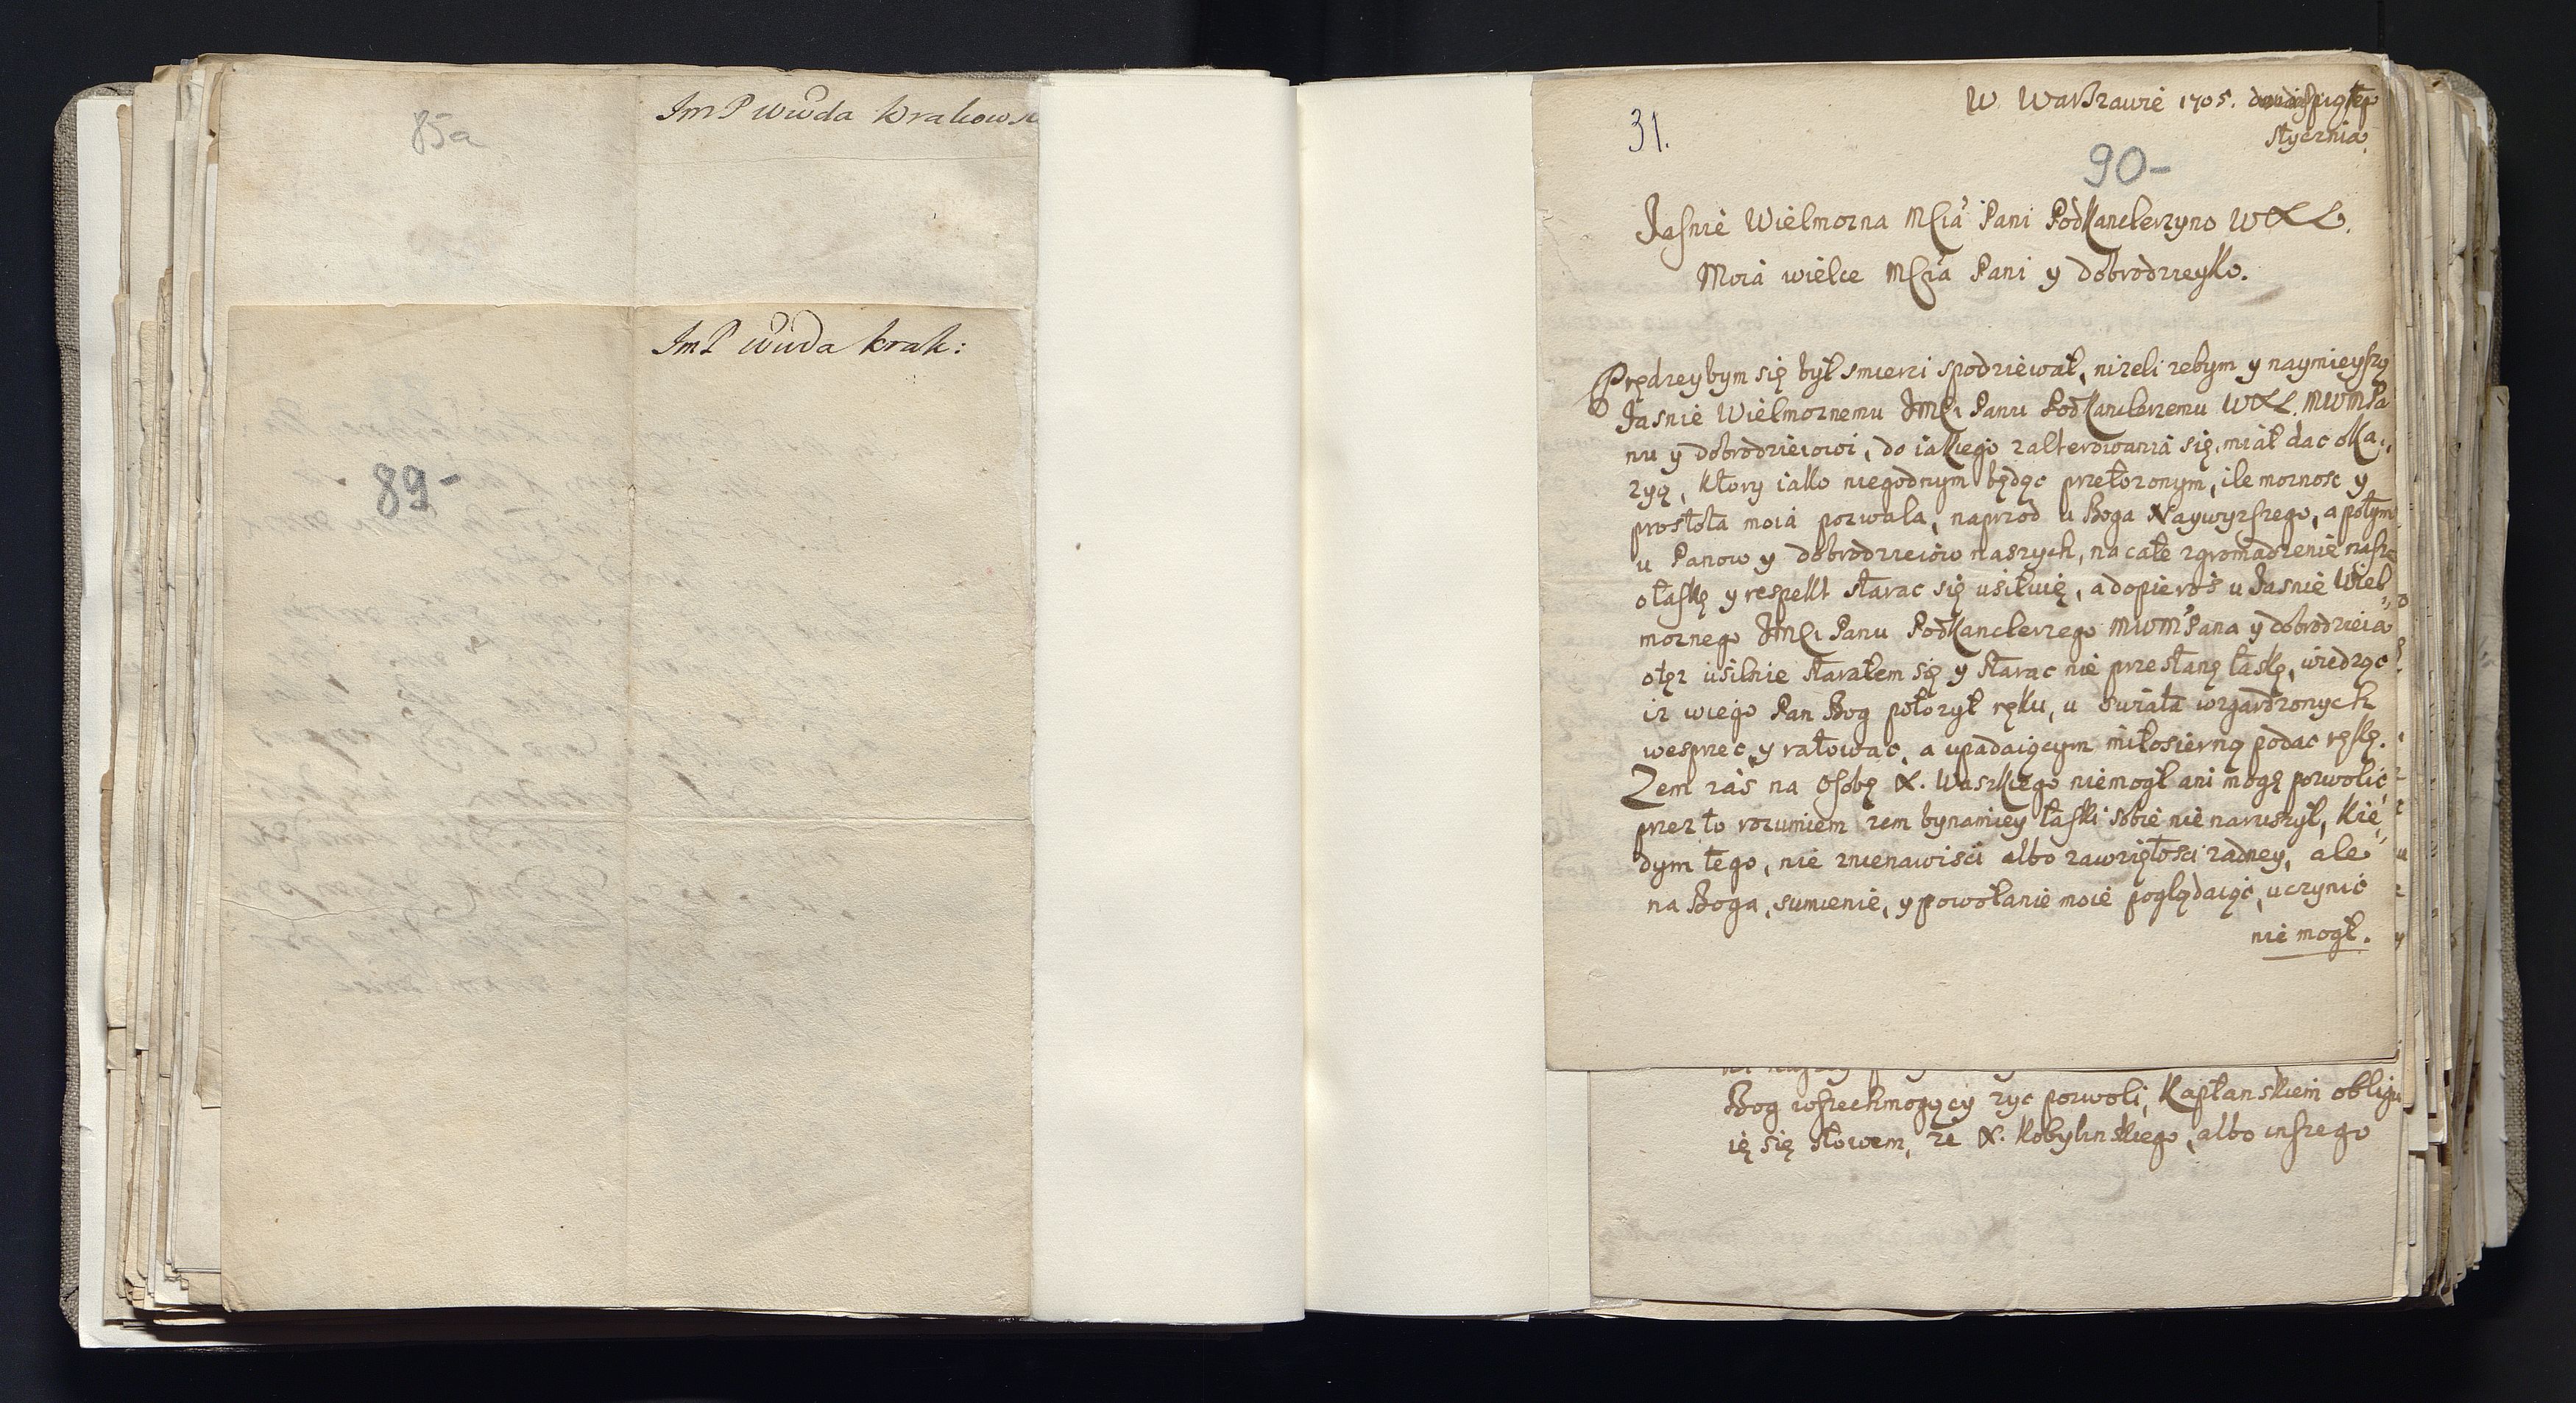 85a
Im P Wwda Krakows
89-
Im P Wwda Krak:
31.
W Warszawie 1705.
stycznia
90-
Jasnie Wielmozna Mscia Pani PodKanclerzyno WXL.
Moia wielce Mscia Pani y dobrodzieyko.
Prędzeybym się był smierzi spodziewał, nizeli zebym y naymieyszą
Jasnie Wielmoznemu JMCi Panu PodKanclerzemu WXL. MWMPa
nu y dobrodzieiowi, do iakiego zalterowania się, miał dac oka,,
zyą, ktory iako niegodnym będąc przełozonym, ile moznosc y
prostota moia pozwala, naprzod u Boga Naywyzszego, a potym
u Panow y dobrodzieiow naszych, na całe zgromadzenie nasze
o łaskę y respekt starac się usiłuię, a dopieroż u Jasnie Wiel,,
moznego JMCi Panu PodKanclerzego MWM Pana y dobrodzieia
otęz usilnie starałem się y starac nie przestanę łaskę, wiedząc
iz wiego Pan Bog połozył ręku, u swiata wzgardzonych
wesprzec y ratowac, a upadaiącym miłosierną podac rękę.
Zem zas na osobę X. Waszkiego niemogł ani mogę pozwolic
przez to rozumiem zem bynamiey łaski sobie nie naruszył, kie,,
dym tego, nie znienawisci albo zawziętosci zadney, ale
na Boga, sumienie, y powołanie moie poglądaiąc, uczynic
nie mogł.
Bog wszechmogący zyc pozwoli, Kapłanskiem obligu
ię się słowem, ze X. Kobylinskiego, albo inszego